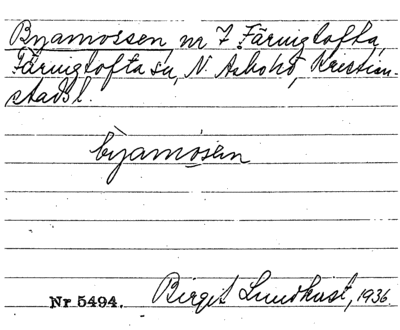 Byamossen nr 7 Färingtofta,
Färingtofta sn, N. Åsbohd, Kristian-
stads l.
byamosen
Nr 5494. Birgit Lundkvist, 1936.